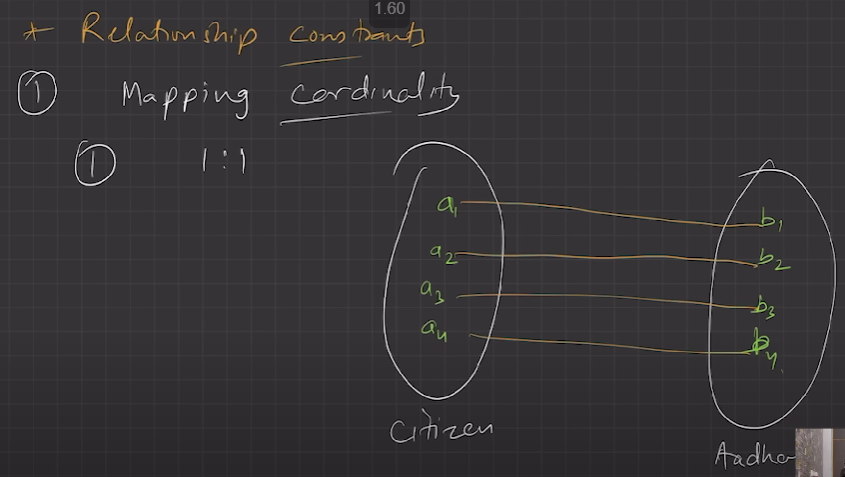 1.60
* Relationship constraints
① Mapping cardinality
① 1:1
a1 b1
a2 b2
a3 b3
a4 b4
Citizen
Aadha